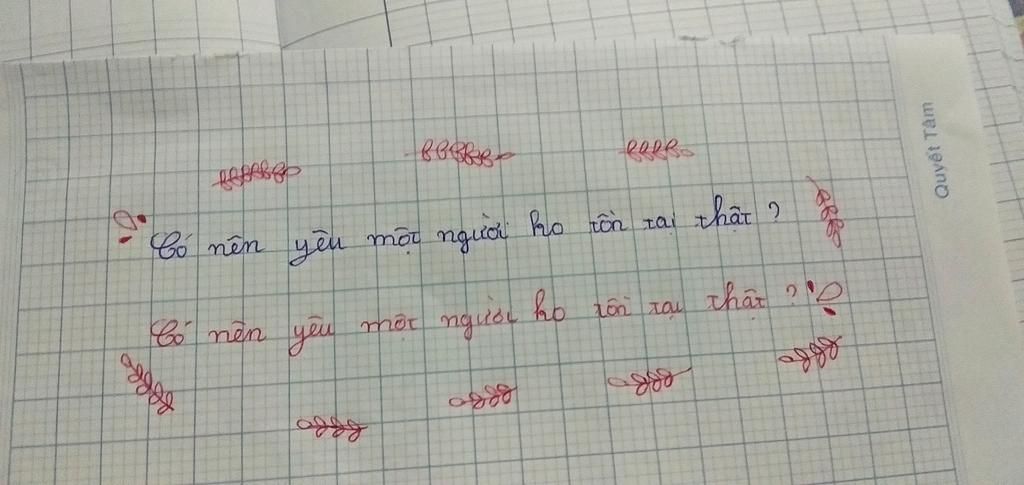 Có nên yêu một người ko tồn tại thật ?
Có nên yêu một người ko tồn tại thật ?
Quyết Tâm